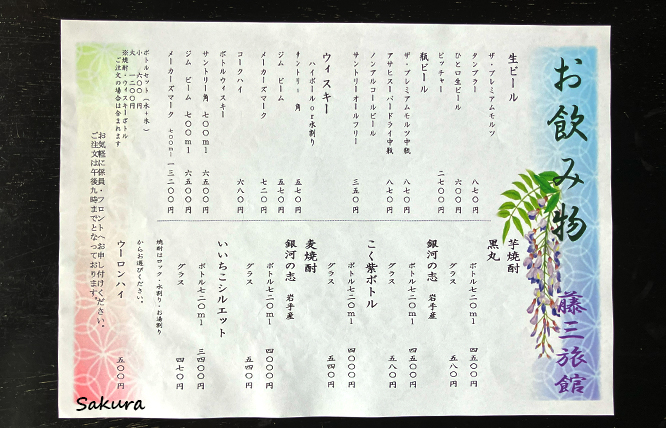 お飲み物
藤三旅館
生ビール
ザ・プレミアムモルツ
タンブラー 八七〇円
ひと口生ビール 六〇〇円
ピッチャー 二七〇〇円
瓶ビール
ザ・プレミアムモルツ中瓶 八七〇円
アサヒスーパードライ中瓶 八七〇円
ノンアルコールビール
サントリーオールフリー 三五〇円
ウィスキー
ハイボールor水割り
サントリー 角 五七〇円
ジム ビーム 五七〇円
メーカーズマーク 七二〇円
コークハイ 六八〇円
ボトルウィスキー
サントリー角 七〇〇ml 六五〇〇円
ジム ビーム 七〇〇ml 六五〇〇円
メーカーズマーク 七〇〇ml 一三二〇〇円
ボトルセット（氷＋水）
小 六〇〇円
大 一二〇〇円
※焼酎・ウィスキーボトル
ご注文の場合は含まれます
芋焼酎
黒丸
ボトル七二〇ml 五五〇〇円
グラス 五八〇円
銀河の志 岩手産
ボトル七二〇ml 四五〇〇円
グラス 五八〇円
こく紫ボトル
ボトル七二〇ml 四〇〇〇円
グラス 五四〇円
麦焼酎
銀河の志 岩手産
ボトル七二〇ml 四〇〇〇円
グラス 五四〇円
いいちこシルエット
ボトル七二〇ml 三四〇〇円
グラス 四七〇円
焼酎はロック・水割り・お湯割り
からお選びください。
ウーロンハイ 五〇〇円
お気軽に係員・フロントへお申し付けください。
ご注文は午後九時までとなっております。
Sakura